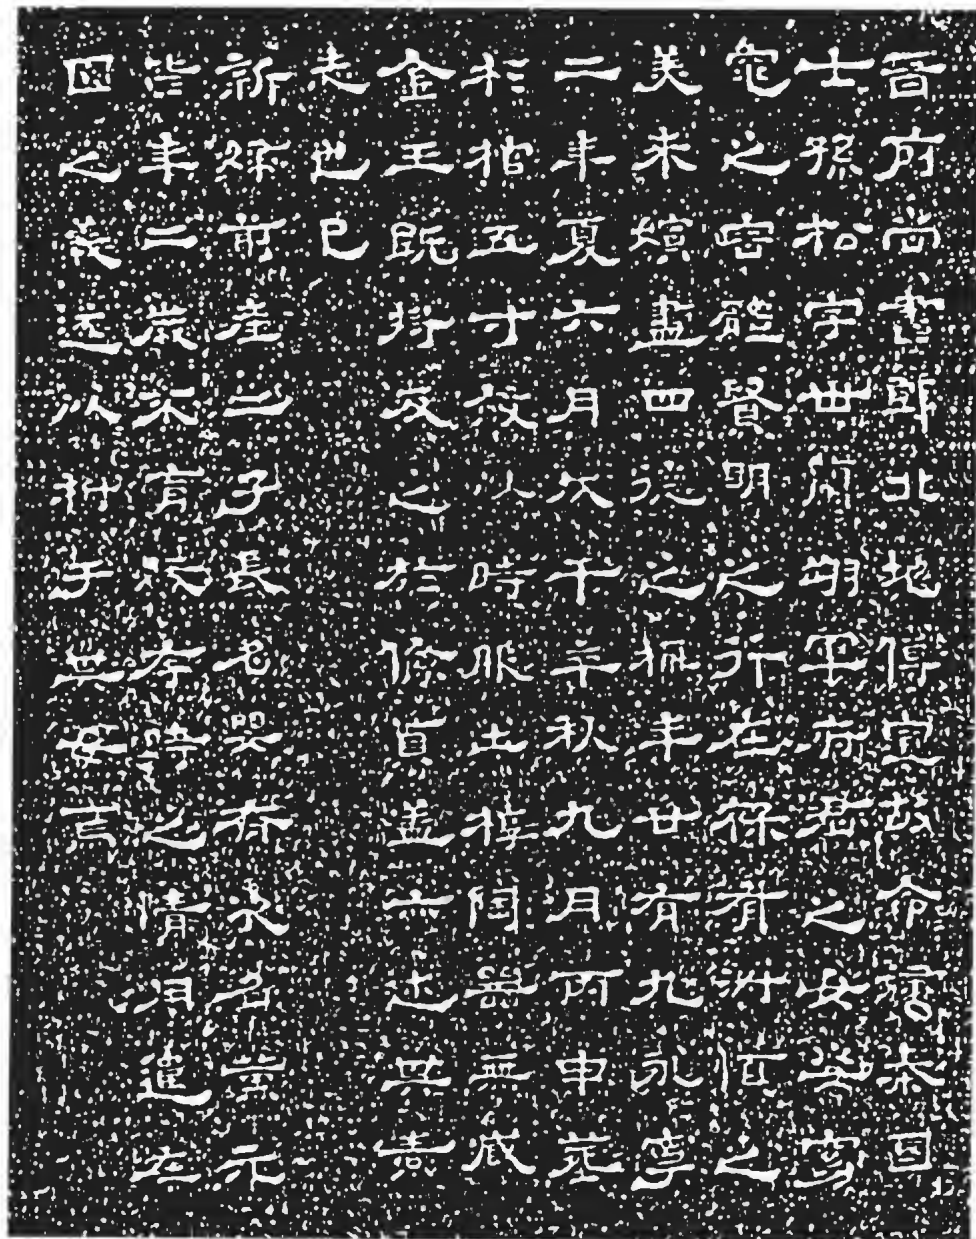 晉前尚書郎北地傅宣故命婦秦國
士孫松字世蘭翊軍府君之女茂窈
窕之容體賢明之行在褓有淑之
美來嬪盡四德之稱年廿有九永寧
二年夏六月戊午卒秋九月丙申葬
於棺五寸斂以時服土槨陶器無藏
金玉既御反之於儉蓋亦述其素
志也已
新婦前產二子長名次名元
皆年二歲不育緣存時之情用遷
園之義遂以祔于其母